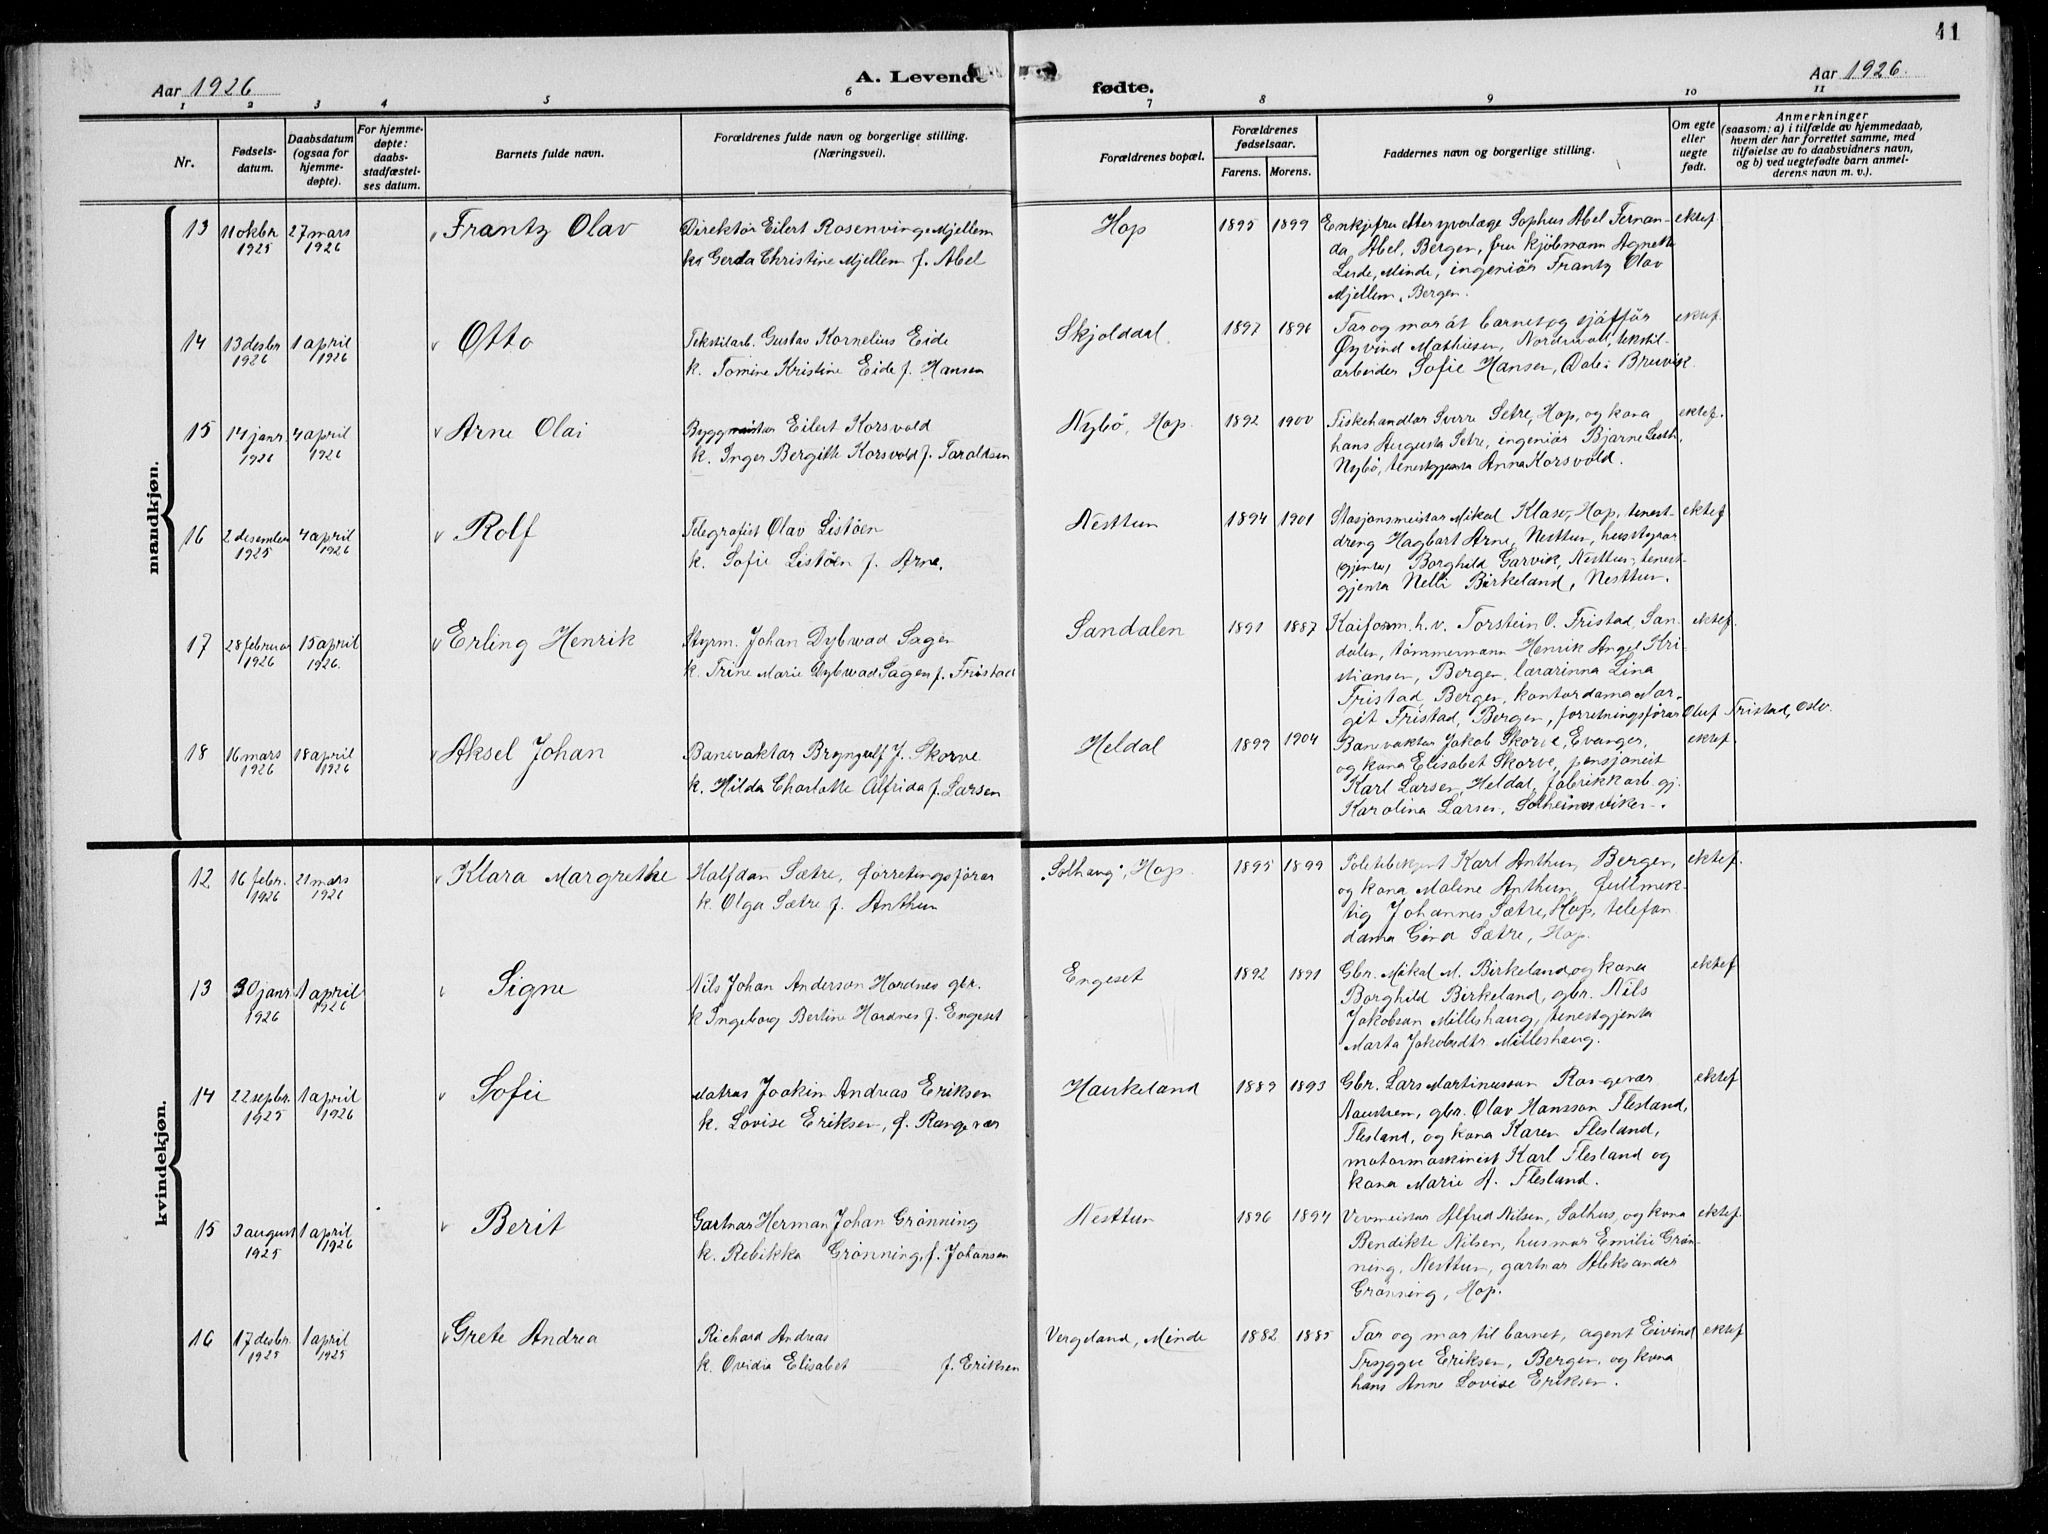 41
Aar 1926
A. Levende fødte.
Aar 1926.
1 2 3 4 5 6 7 8 9 10 11
Nr.
Fødsels-
datum.
Daabsdatum
(ogsaa for
hjemme-
døpte).
For hjemme-
døpte:
daabs-
stadfæstel-
ses datum.
Barnets fulde navn.
Forældrenes fulde navn og borgerlige stilling.
(Næringsvei).
Forældrenes bopæl.
Forældrenes
fødselsaar.
Farens. Morens.
Faddernes navn og borgerlige stilling.
Om egte
eller
uegte
født.
Anmerkninger
(saasom: a) i tilfælde av hjemmedaab,
hvem der har forrettet samme, med
tilføielse av to daabsvidners navn,
og b) ved uegtefødte barn anmel-
derens navn m. v.).
mandkjøn.
13
11 oktbr
1925
27 mars
1926
Frantz Olav
Direktør Eilert Rosenvinge Mjellem
k. Gerda Christine Mjellem f. Abel
Hop
1895 1899
Enkjefru etter yverlæge Sophus Abel Fernan-
da Abel, Bergen, fru kjøbmann Agnette
Lerde, Minde, ingeniør Frantz Olav
Mjellem, Bergen.
ektef
14
13 desbr
1926
1 april
1926
Otto
Tekstilarb. Gustav Kornelius Eide
k. Tomine Kristine Eide f. Hansen
Skjolddal.
1897 1896
Far og mor åt barnet og sjåffør
Øyvind Mathiesen, Nordvoll, tekstil-
arbeider Sofie Hansen, Dale i Bruvik.
ektef.
15
14 janr
1926
4 april
1926
Arne Olai
Byggmeistar Eilert Korsvold
k. Inger Bergitte Korsvold f. Taraldsen
Nybø, Hop.
1892 1900
Fiskehandlar Sverre Setre, Hop, og kona
hans Augusta Setre, ingeniør Bjarne
Nybø, tenestgjenta Anna Korsvold.
ektef.
16
2 desember
1925
4 april
1926
Rolf
Telegrafist Olav Listöen
k. Sofie Listöen f. Arne.
Nesttun
1894 1901
Stasjonsmeistar Mikal Klaser, Hop, tenest-
dreng Hagbart Arne, Nesttun, husstyrar
(gjenta) Borghild Garvik, Nesttun, tenest-
gjenta Nelli Birkeland, Nesttun.
ektef
17
28 februar
1926
15 april
1926.
Erling Henrik
Styrm. Johan Dybwad Sagen
k. Trine Marie Dybwad Sagen f. Fristad
Sandalen
1891 1887
Kaiform. h. v. Torstein O. Fristad, San-
dalen, tømmermann Henrik Angel Kri-
stiansen, Bergen, lærarinna Lina
Fristad, Bergen, kontordama Mar-
git Fristad, Bergen, forretningsførar Oluf Fristad, Oslo.
ektef.
18
16 mars
1926
18 april
1926
Aksel Johan
Banevaktar Bryngulf J. Skorve
k. Hilda Charlotte Alfrida f. Larsen
Heldal
1899 1904
Banevaktar Jakob Skorve, Evanger,
og kona Elisabet Skorve, pensjoneit
Karl Larsen, Heldal, fabrikkarb. gj.
Karolina Larsen, Solheimsviken.
ektef.
kvindekjøn.
12
16 febr.
1926
21 mars
1926
Klara Margrethe
Halfdan Sætre, forretingsførar
k. Olga Sætre f. Anthun
"Solhaug", Hop.
1895 1899
Politibetjent Karl Anthun, Bergen,
og kona Maline Anthun, fullmek-
tig Johannes Sætre, Hop, telefon
dama Gina Sætre, Hop.
ektef.
13
30 janr
1926
1 april
1926
Signe
Nils Johan Anderson Hordnes gbr.
k Ingeborg Bertine Hordnes f. Engeset
Engeset
1892 1891
Gbr. Mikal M. Birkeland og kona
Borghild Birkeland, gbr. Nils
Jakobson Milleshaug, tenestgjenta
Marta Jakobsdtr. Milleshaug.
ektef
14
22 sepbr.
1925
1 april
1926
Sofie
Matros Joakim Andreas Eriksen
k. Lovise Eriksen, f. Rangevær
Haukeland
1889 1893
Gbr. Lars Martinusson Rangevær
Aaustren, gbr. Olav Hansson Flesland,
Flesland, og kona Karen Flesland,
motormaskinist Karl Flesland og
kona Marie A. Flesland.
ektef
15
3 august
1925
1 april
1926
Berit
Gartnar Herman Johan Grønning
k. Rebikka Grønning, f. Johansen
Nesttun
1896 1894
Vevmeistar Alfred Nilsen, Salhus, og kona
Bendikte Nilsen, husmor Emilie Grøn-
ning, Nesttun, gartnar Aleksander
Grønning, Hop.
ektef.
16
17 desbr.
1925
1 april
1925
Grete Andrea
Richard Andreas
k. Ovidia Elisabet f. Eriksen
Vergeland, Minde
1882 1885
Far og mor til barnet, agent Eivind
Tryggve Eriksen, Bergen, og kona
hans Anne Lovise Eriksen.
ektef